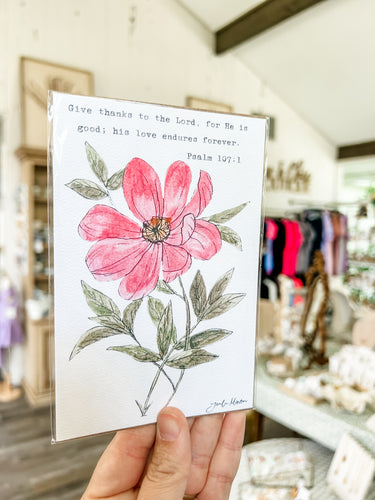 Give thanks to the Lord, for He is
good; his love endures forever.
Psalm 107:1